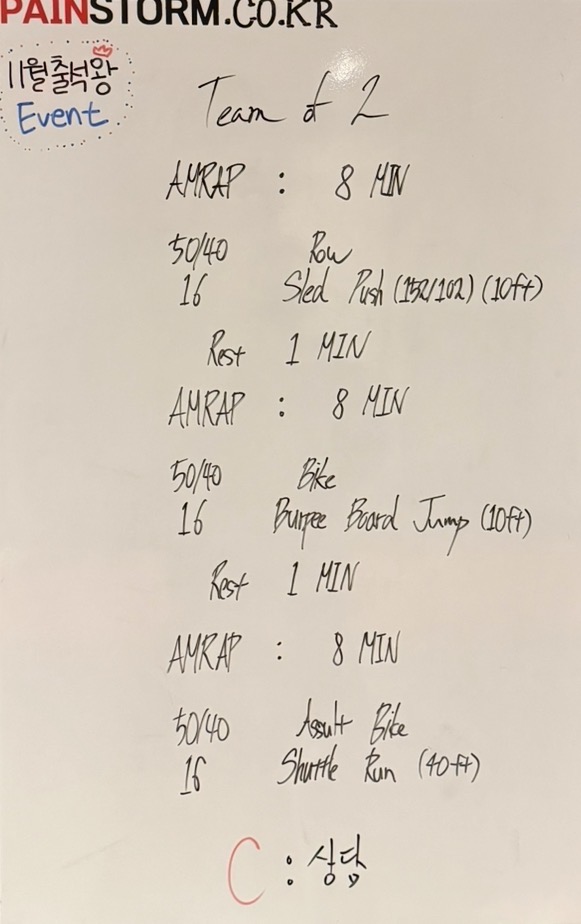 PAINSTORM.CO.KR
11월 출석왕
Event
Team of 2
AMRAP : 8 MIN
50/40 Row
16 Sled Push (152/102) (10ft)
Rest 1 MIN
AMRAP : 8 MIN
50/40 Bike
16 Burpee Board Jump (10ft)
Rest 1 MIN
AMRAP : 8 MIN
50/40 Assult Bike
16 Shuttle Run (40ft)
C : 상담